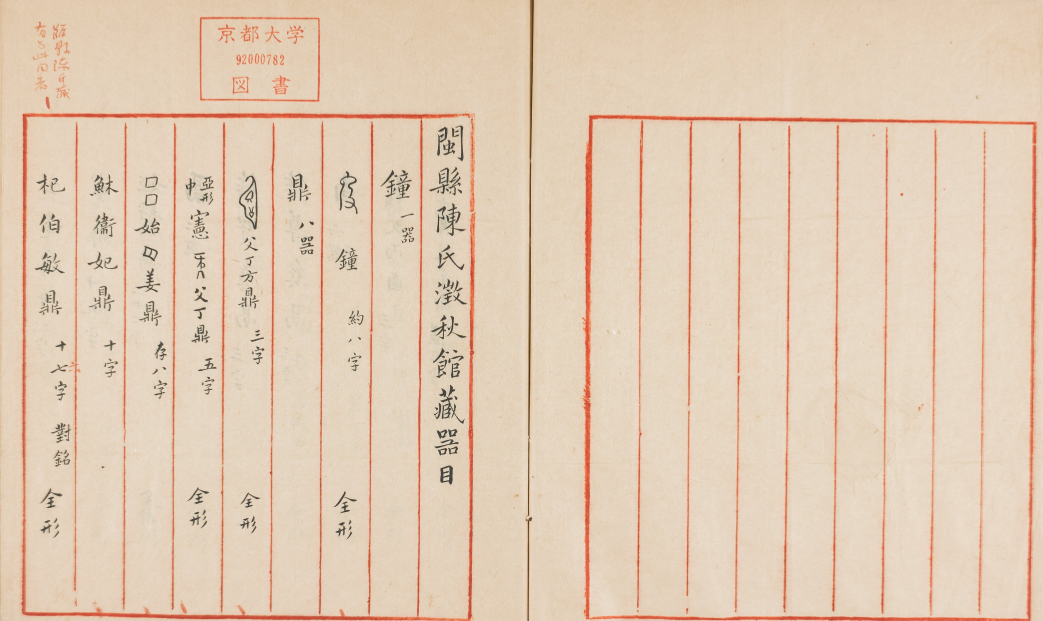 京都大学
92000782
図書
閩縣陳氏澂秋館藏器目
鐘 一器
鐘 約八字 全形
鼎 八器
父丁方鼎 三字 全形
亞形中憲 父丁鼎 五字 全形
□□始 姜鼎 存八字
穌衞妃鼎 十字
杞伯敏鼎 十七字 對銘 全形